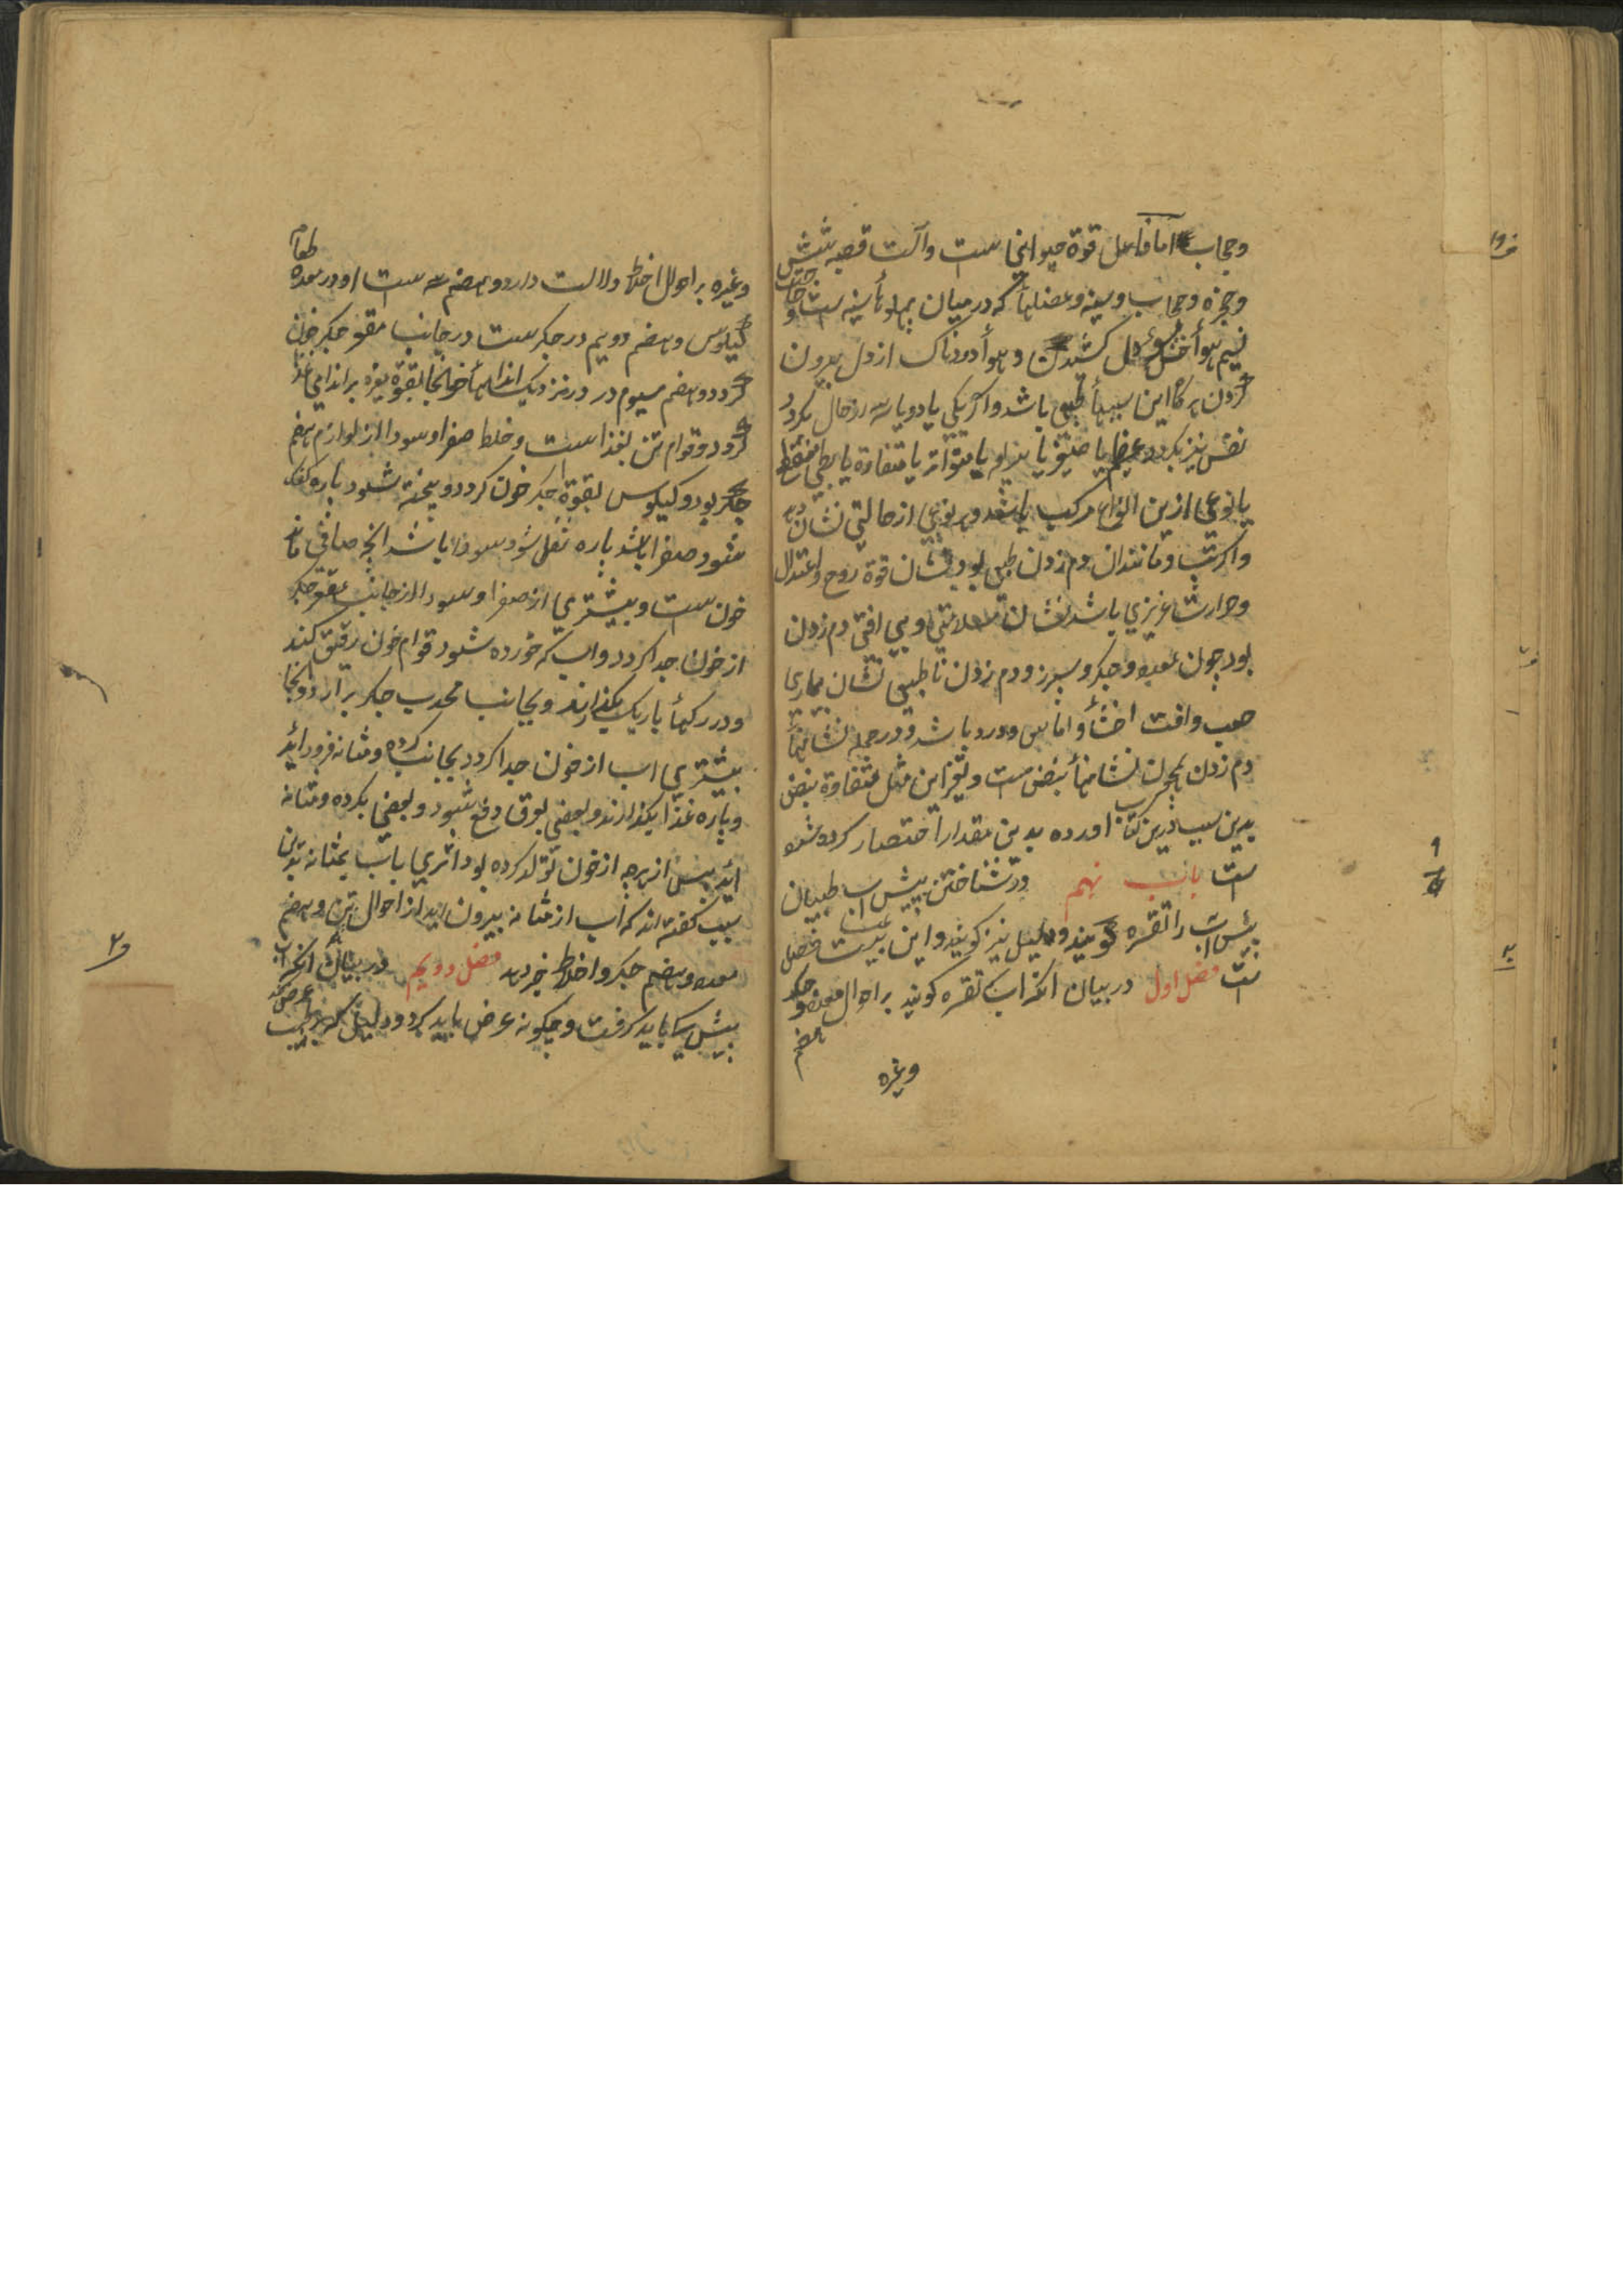 وحجاب اما فاعل قوة حیوانی است وآلت قصبه شش
وحنجره وحجاب وسینه وعضلهأ که درمیان پهلوهأ سینه است وحاجت
نسیم هوأ خنک سوی دل کشیدن وهوأ دودناک از دل بیرون
کردن هرکاه این سببهأ طبعی باشد واکر یکی یا دو یا سه از حال بکردد
نفس نیز بکردد عظیم یا ضیق یا سریع یا متواتر یا متفاوة یا بطی منقطع
یا نوعی ازین انواع مرکب باشد وهر نوعی از حالتی نشان دهد
واکر تب ومانندان دم زدن طبعی بود نشان قوة روح واعتدال
وحرارت غریزی باشد نشان سلامتی وبی افتی دم زدن
بود چون معده وجکر وسپرز ودم زدن ناطبعی نشان بیماری
صعب وافت احشأ واماس ودرد باشد ودر جمله نشانهأ
دم زدن همچون نشانهأ نبض است ونیز این مثل متفاوة نبض
بدین سبب درین کتاب اورده بدین مقدار اختصار کرده شده
است باب نهم در شناختن پیش اب طبیبان
پیش اب را تقسره کویند ودلیل نیز کویند واین بیست فصل
است فصل اول در بیان انکه اب تقسره کویند بر احوال معده وجکر
هضم
وغیره
وغیره بر احوال اخلاط دلالت دارد وهضم سه است اول در معده طعام
کیلوس وهضم دویم در جکر است در جانب مقعر جکر خون
کردد وهضم سیوم در نزدیک اندامهأ خانجا بقوة غیره بر اندامی غذا
کردد وقوام تن بغذا است وخلط صفرا وسودا از لوازم هضم
جکر بود وکیلوس بقوة جکر خون کردد وپخته شود پاره کفک
شود صفرا باشد پاره ثفل شود سودا باشد انچه صافی ماند
خون است وبیشتری از صفرا وسودا از جانب مقعر جکر
از خون جدا کردد واب که خورده شود قوام خون رقیق کند
ودر رکهأ باریک بکذارند وبجانب محدب جکر برارد وانجا
بیشتری اب از خون جدا کردد بجانب کرده ومثانه فرود اید
وپاره غذا بکذارند وبعضی بعرق دفع شود وبعضی بکرده ومثانه
اید پس از هرچه از خون تولد کرده بود اثری باب بمثانه بدین
سبب کفته اند که اب از مثانه بیرون اید از احوال تن وهضم
معده وهضم جکر واخلاط خبر دهد فصل دویم در بیان انکه اب
پیش کی باید کرفت وچکونه عرض باید کرد ودلیل که بر طبیب عرض کند